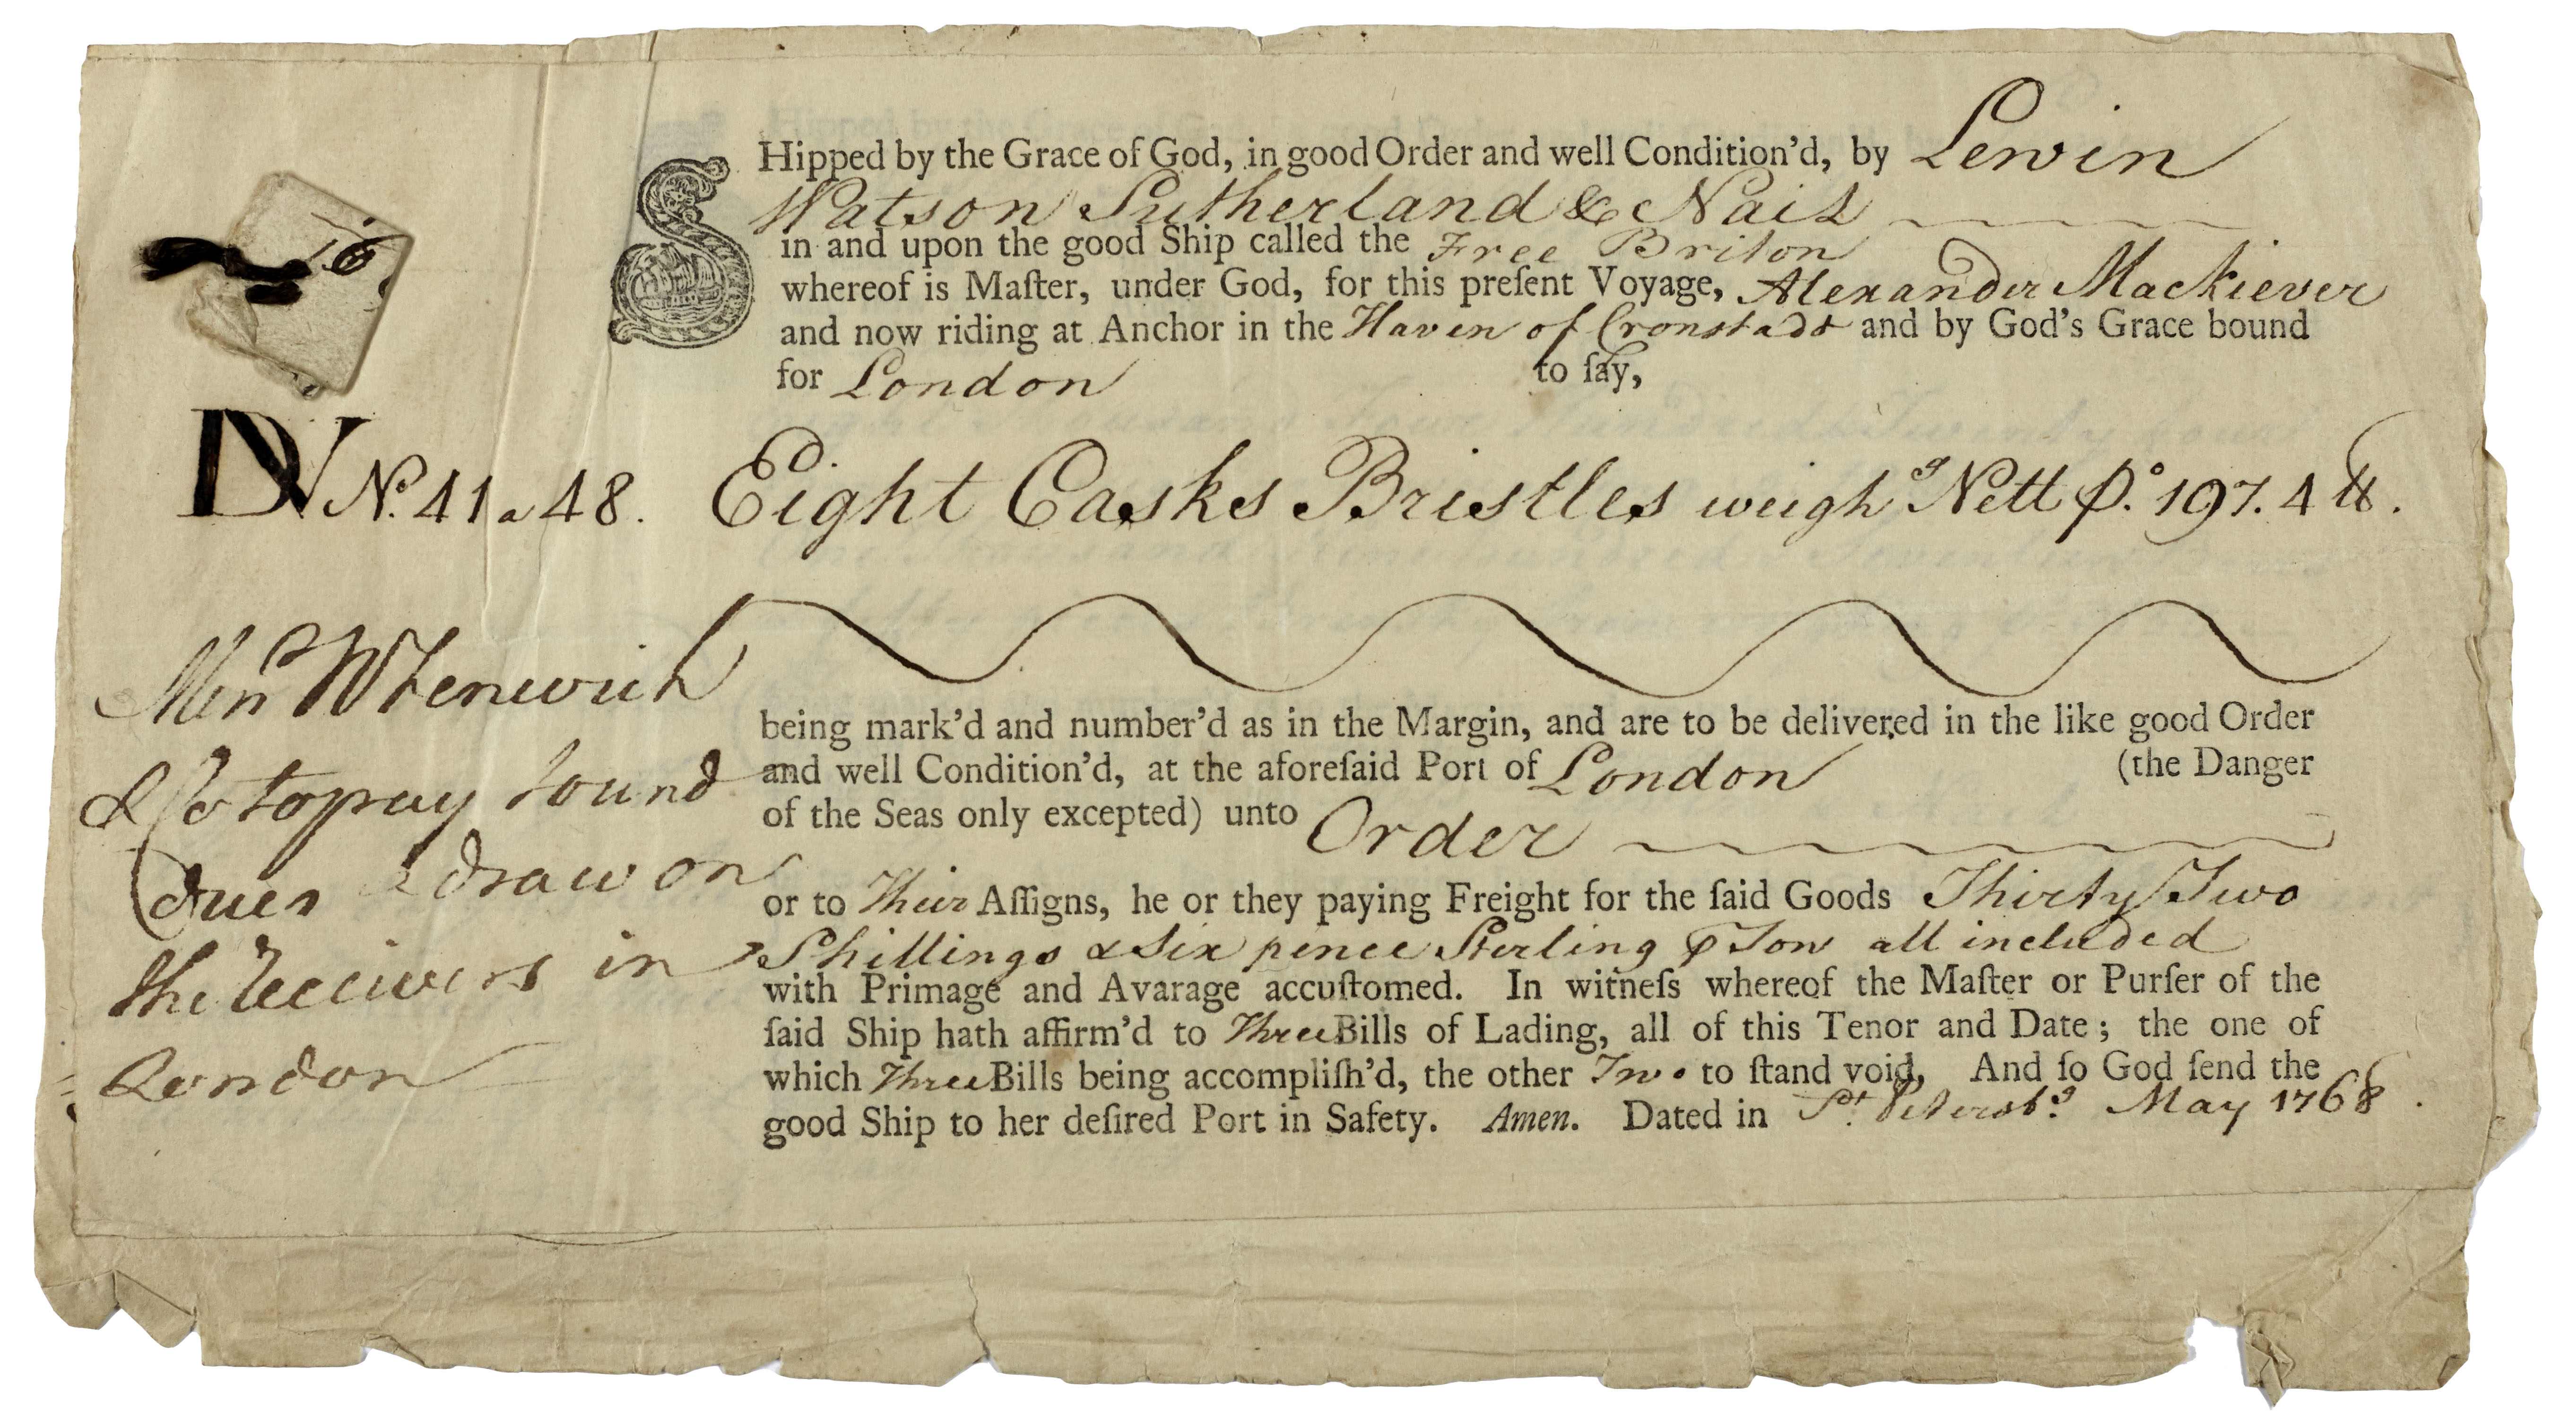 SHipped by the Grace of God, in good Order and well Condition'd, by Lewin
Watson Sutherland & Nail
in and upon the good Ship called the Free Briton
whereof is Maſter, under God, for this preſent Voyage, Alexander Mackiever
and now riding at Anchor in the Haven of Cronstadt and by God's Grace bound
for London to ſay,
N.º 41 a 48. Eight Casks Bristles weigh.g Nett p.º 197. 4 ℔.
being mark'd and number'd as in the Margin, and are to be delivered in the like good Order
and well Condition'd, at the aforeſaid Port of London (the Danger
of the Seas only excepted) unto Order
or to Their Aſſigns, he or they paying Freight for the ſaid Goods Thirty Two
Shillings & Six pence Sterling ⅌ Ton all included
with Primage and Avarage accuſtomed. In witneſs whereof the Maſter or Purſer of the
ſaid Ship hath affirm'd to Three Bills of Lading, all of this Tenor and Date; the one of
which Three Bills being accompliſh'd, the other Two to ſtand void, And ſo God ſend the
good Ship to her deſired Port in Safety. Amen. Dated in S.t Petersb.g May 1768.
Fenwick
& Co to pay Sound
dues & draw on
the receivers in
London